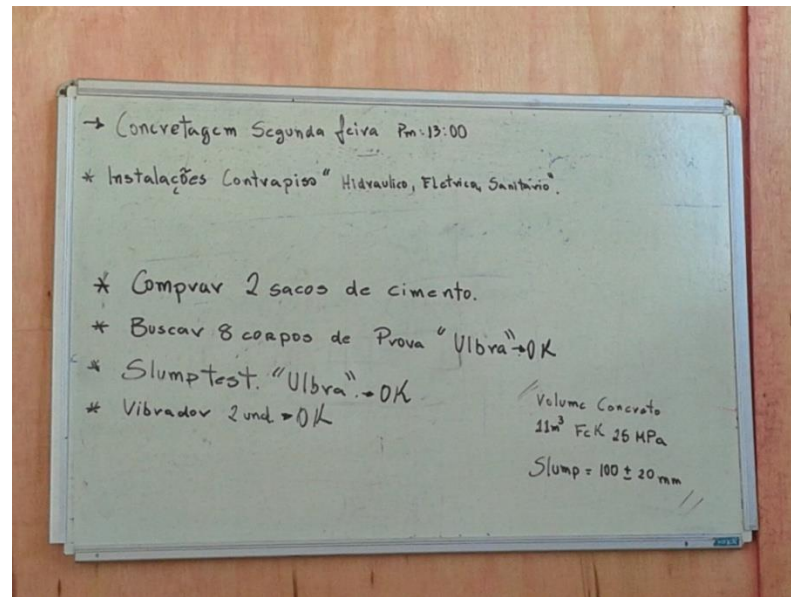 → Concretagem Segunda feira Pm: 13:00
* Instalações Contrapiso " Hidraulico, Eletrica, Sanitário".
* Comprar 2 sacos de cimento.
* Buscar 8 corpos de Prova "Ulbra" → OK
* Slump test. "Ulbra". → OK
* Vibrador 2 und → OK
// Volume Concreto
11m³ FcK 25 MPa
Slump = 100 ± 20 mm //